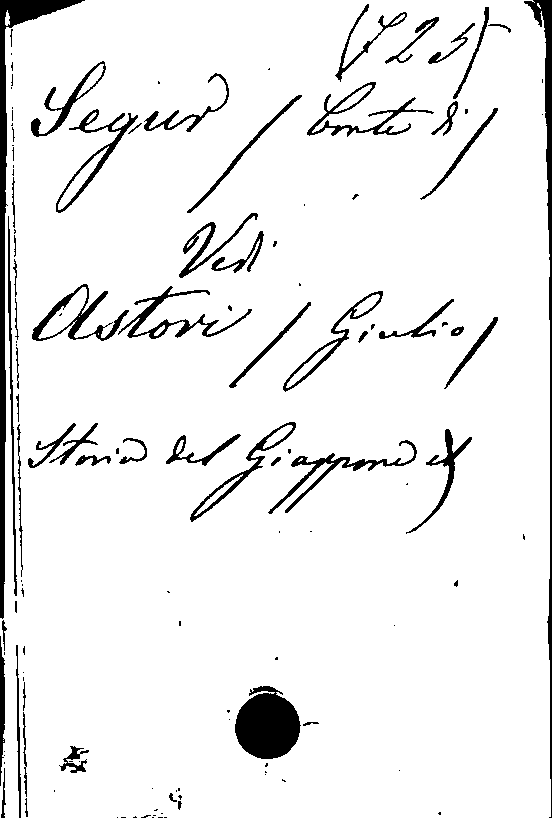 (725)
Segur / Conte di /
Vedi
Astori / Giulio /
Storia del Giappone